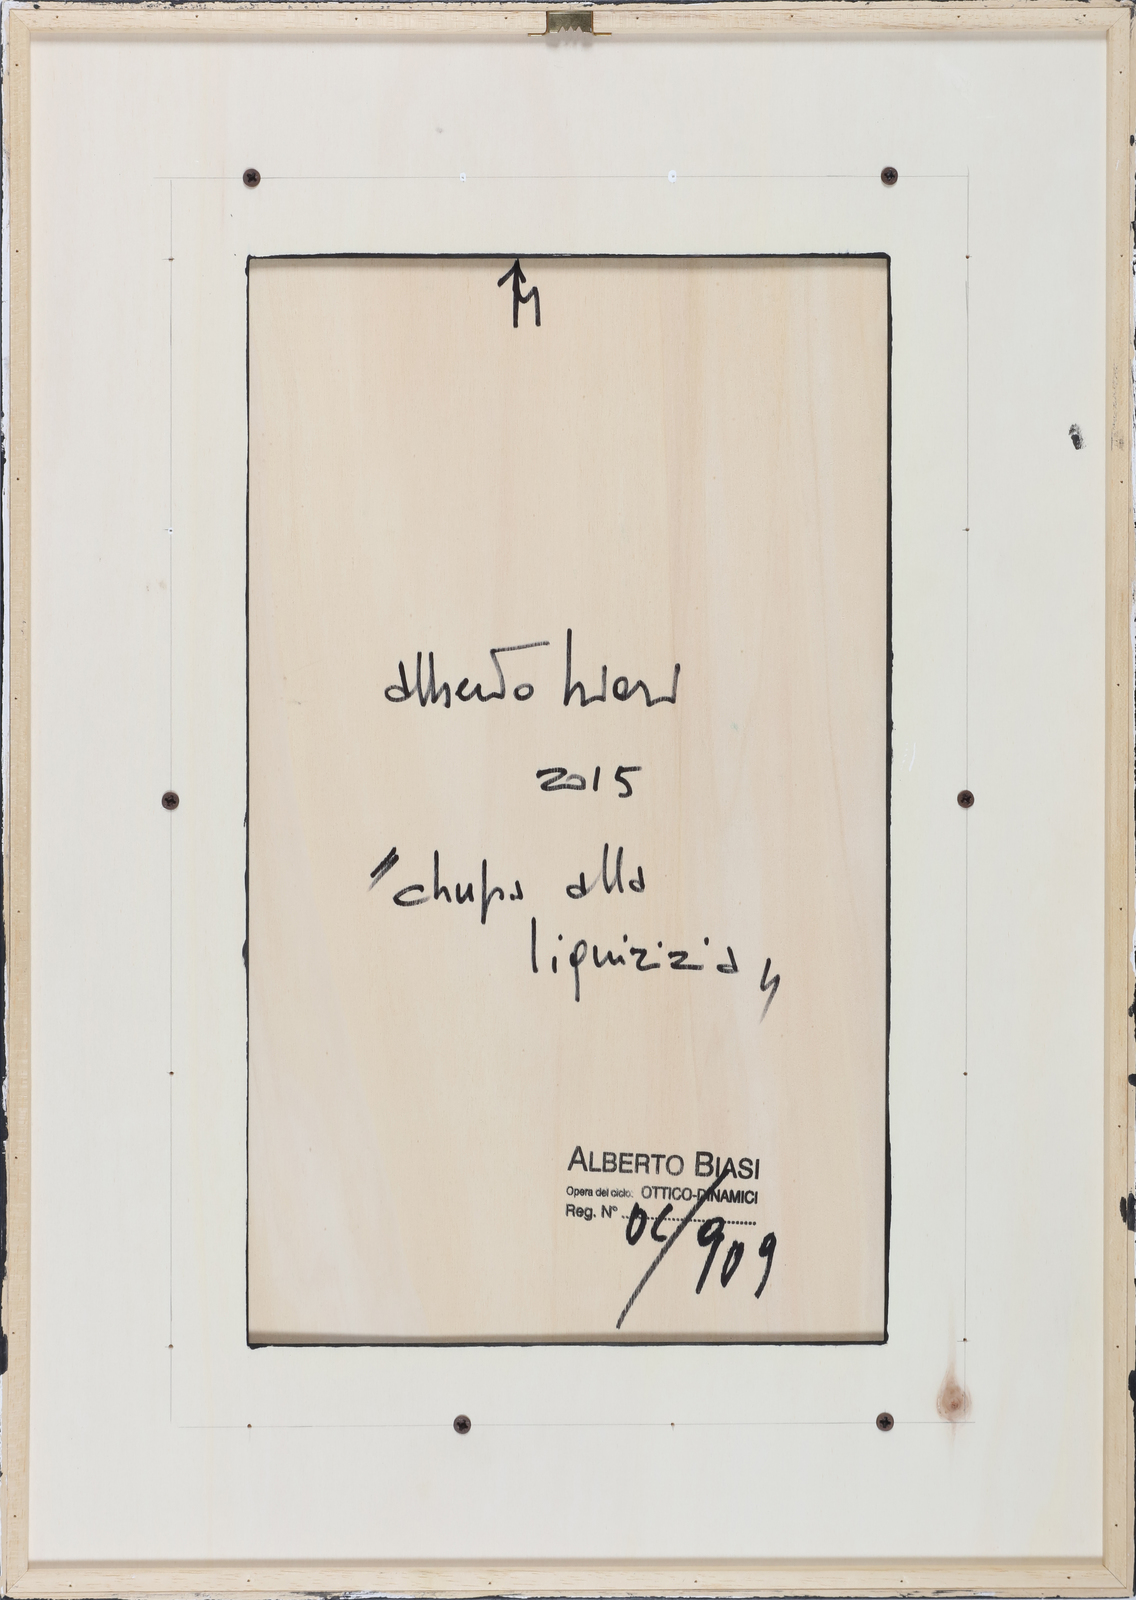 alberto biasi
2015
"chupa alla
liquizzia"
ALBERTO BIASI
Opera del ciclo: OTTICO-DINAMICI
Reg. N° 06/909